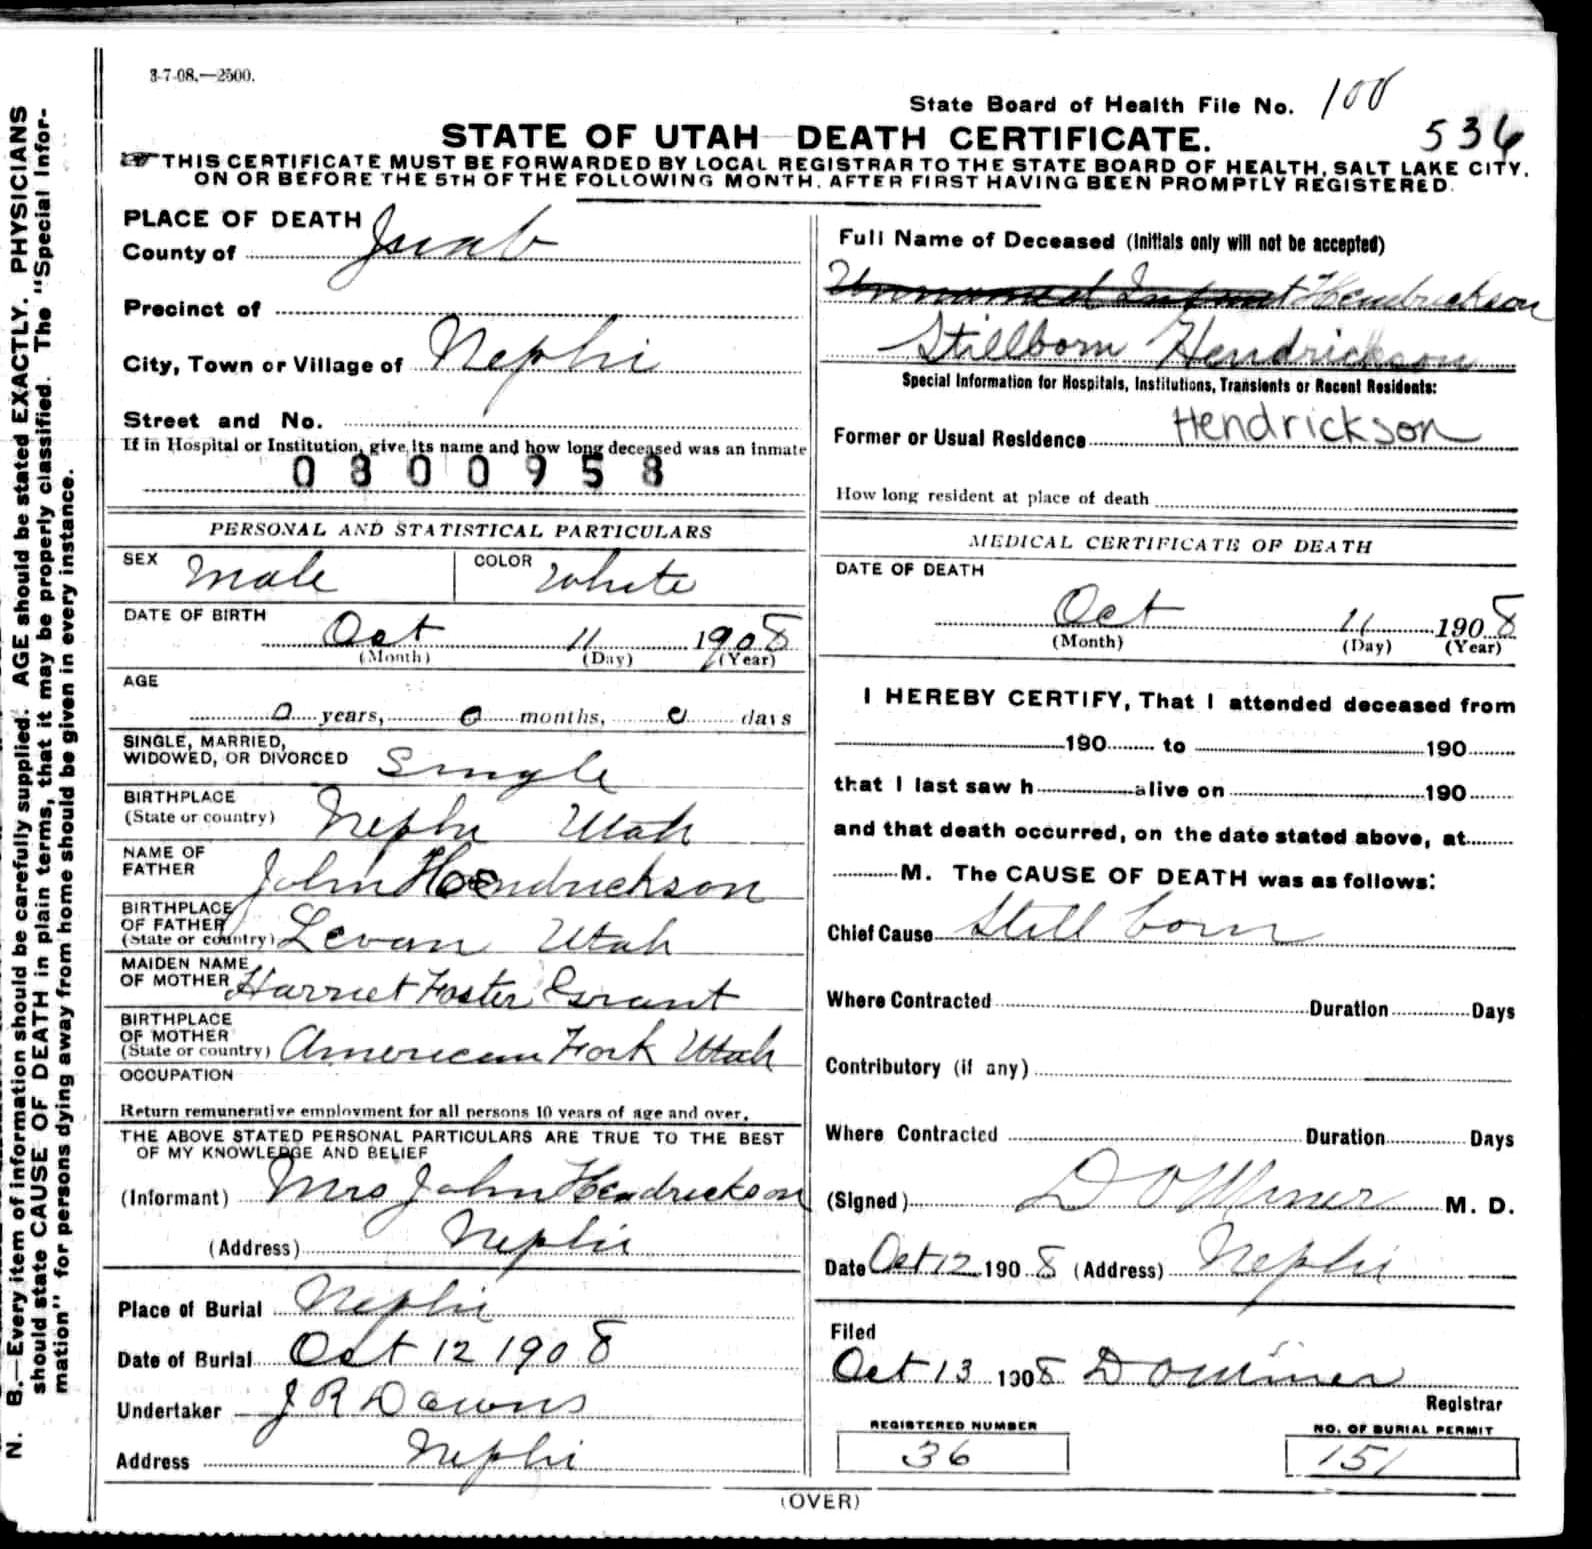 3-7-08.—2500.
State Board of Health File No. 108
536
STATE OF UTAH—DEATH CERTIFICATE.
THIS CERTIFICATE MUST BE FORWARDED BY LOCAL REGISTRAR TO THE STATE BOARD OF HEALTH, SALT LAKE CITY,
ON OR BEFORE THE 5TH OF THE FOLLOWING MONTH, AFTER FIRST HAVING BEEN PROMPTLY REGISTERED.
PLACE OF DEATH
County of Juab
Precinct of
City, Town or Village of Nephi
Street and No.
If in Hospital or Institution, give its name and how long deceased was an inmate
0300958
PERSONAL AND STATISTICAL PARTICULARS
SEX Male COLOR White
DATE OF BIRTH
Oct 11 1908
(Month) (Day) (Year)
AGE
0 years, 0 months, 0 days
SINGLE, MARRIED,
WIDOWED, OR DIVORCED Single
BIRTHPLACE
(State or country) Nephi Utah
NAME OF
FATHER John Hendrickson
BIRTHPLACE
OF FATHER
(State or country) Levan Utah
MAIDEN NAME
OF MOTHER Harriet Foster Grant
BIRTHPLACE
OF MOTHER
(State or country) American Fork Utah
OCCUPATION
Return remunerative employment for all persons 10 years of age and over.
THE ABOVE STATED PERSONAL PARTICULARS ARE TRUE TO THE BEST
OF MY KNOWLEDGE AND BELIEF
(Informant) Mrs John Hendrickson
(Address) Nephi
Place of Burial Nephi
Date of Burial Oct 12 1908
Undertaker J R Downs
Address Nephi
Full Name of Deceased (Initials only will not be accepted)
Unnamed Infant Hendrickson
Stillborn Hendrickson
Special Information for Hospitals, Institutions, Transients or Recent Residents:
Former or Usual Residence Hendrickson
How long resident at place of death
MEDICAL CERTIFICATE OF DEATH
DATE OF DEATH
Oct 11 1908
(Month) (Day) (Year)
I HEREBY CERTIFY, That I attended deceased from
190 to 190
that I last saw h alive on 190
and that death occurred, on the date stated above, at
M. The CAUSE OF DEATH was as follows:
Chief Cause Still born
Where Contracted Duration Days
Contributory (if any)
Where Contracted Duration Days
(Signed) D O Miner M. D.
Date Oct 12 1908 (Address) Nephi
Filed
Oct 13 1908 D O Miner
Registrar
REGISTERED NUMBER NO. OF BURIAL PERMIT
36 151
(OVER)
N. B.—Every item of information should be carefully supplied. AGE should be stated EXACTLY. PHYSICIANS
should state CAUSE OF DEATH in plain terms, that it may be properly classified. The "Special Infor-
mation" for persons dying away from home should be given in every instance.